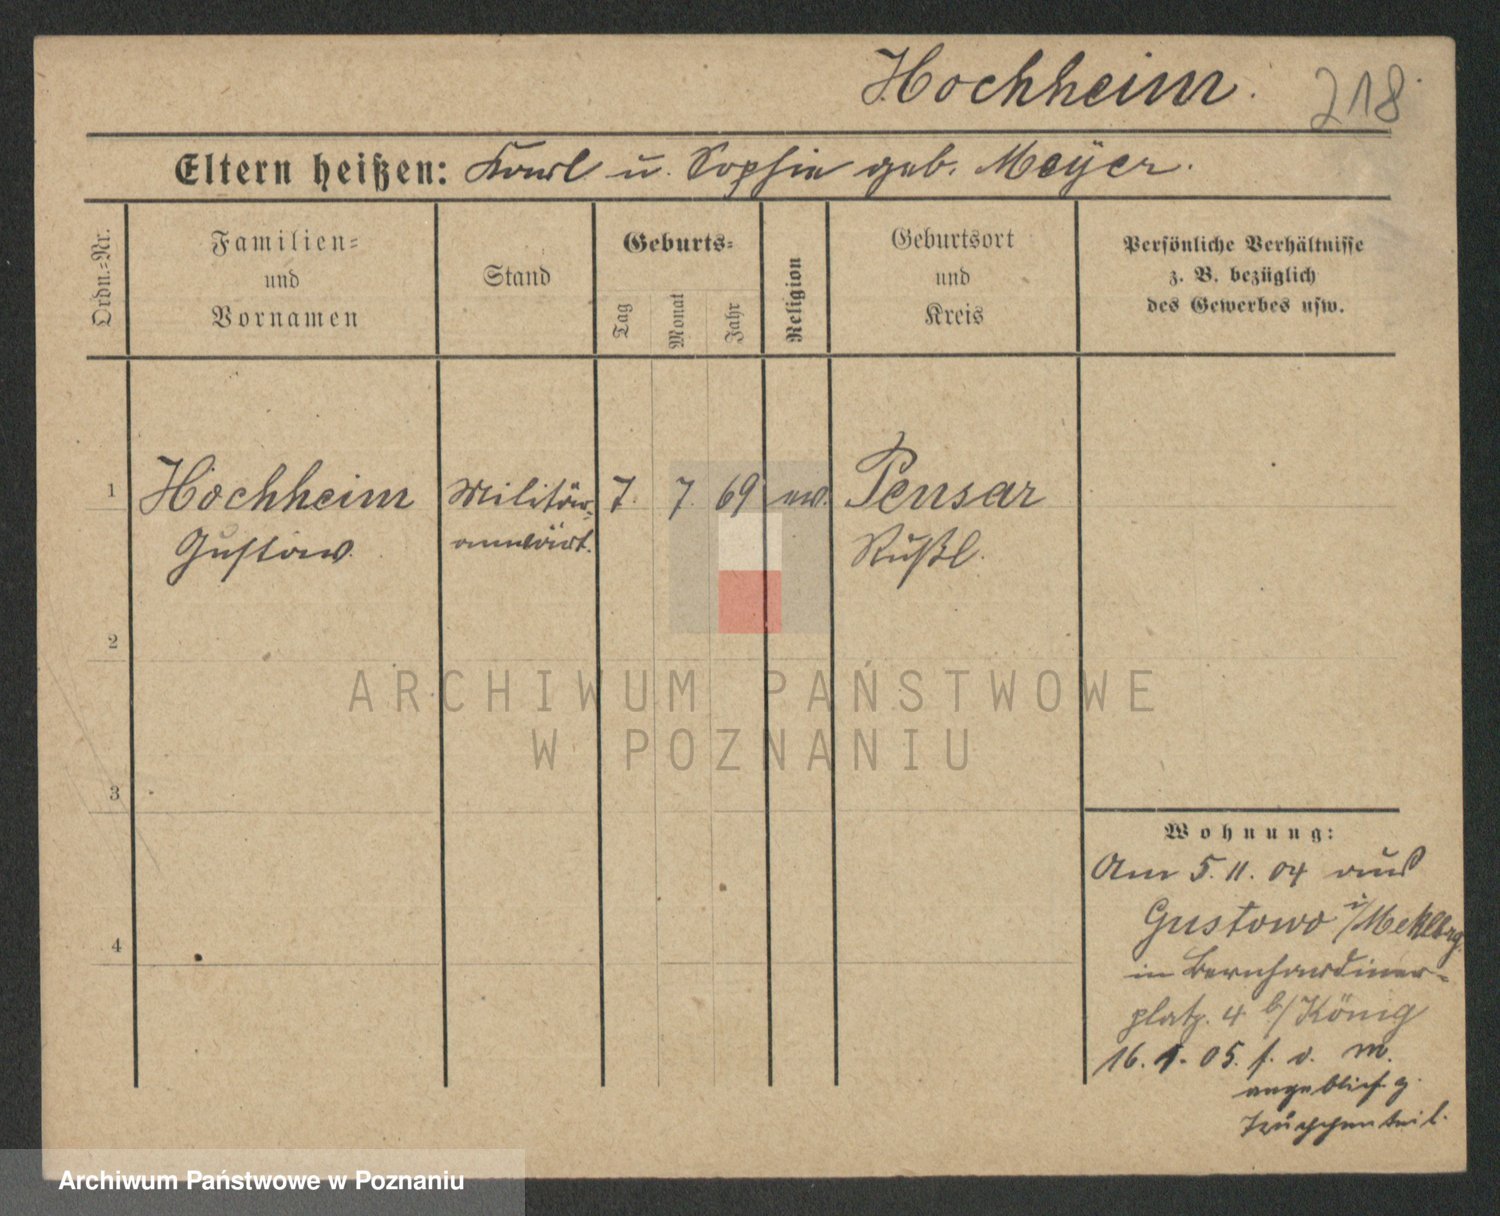 Hochheim.
218
Eltern heißen: Karl u. Sophie geb. Meÿer.
Ordn.=Nr.
Familien=
und
Vornamen
Stand
Geburts=
Tag
Monat
Jahr
Religion
Geburtsort
und
Kreis
Persönliche Verhältnisse
z. B. bezüglich
des Gewerbes usw.
1
Hochheim
Gustav.
Militär
anwärt.
7.
7.
69
ev.
Pensar
Rußl.
2
3
4
ARCHIWUM PAŃSTWOWE
W POZNANIU
Wohnung:
Am 5. 11. 04 aus
Gustowo i/Meklbrg
in Bernhardiner-
platz. 4 b/König
16. 1. 05. f. v. m.
angeblich z.
Truppenteil.
Archiwum Państwowe w Poznaniu